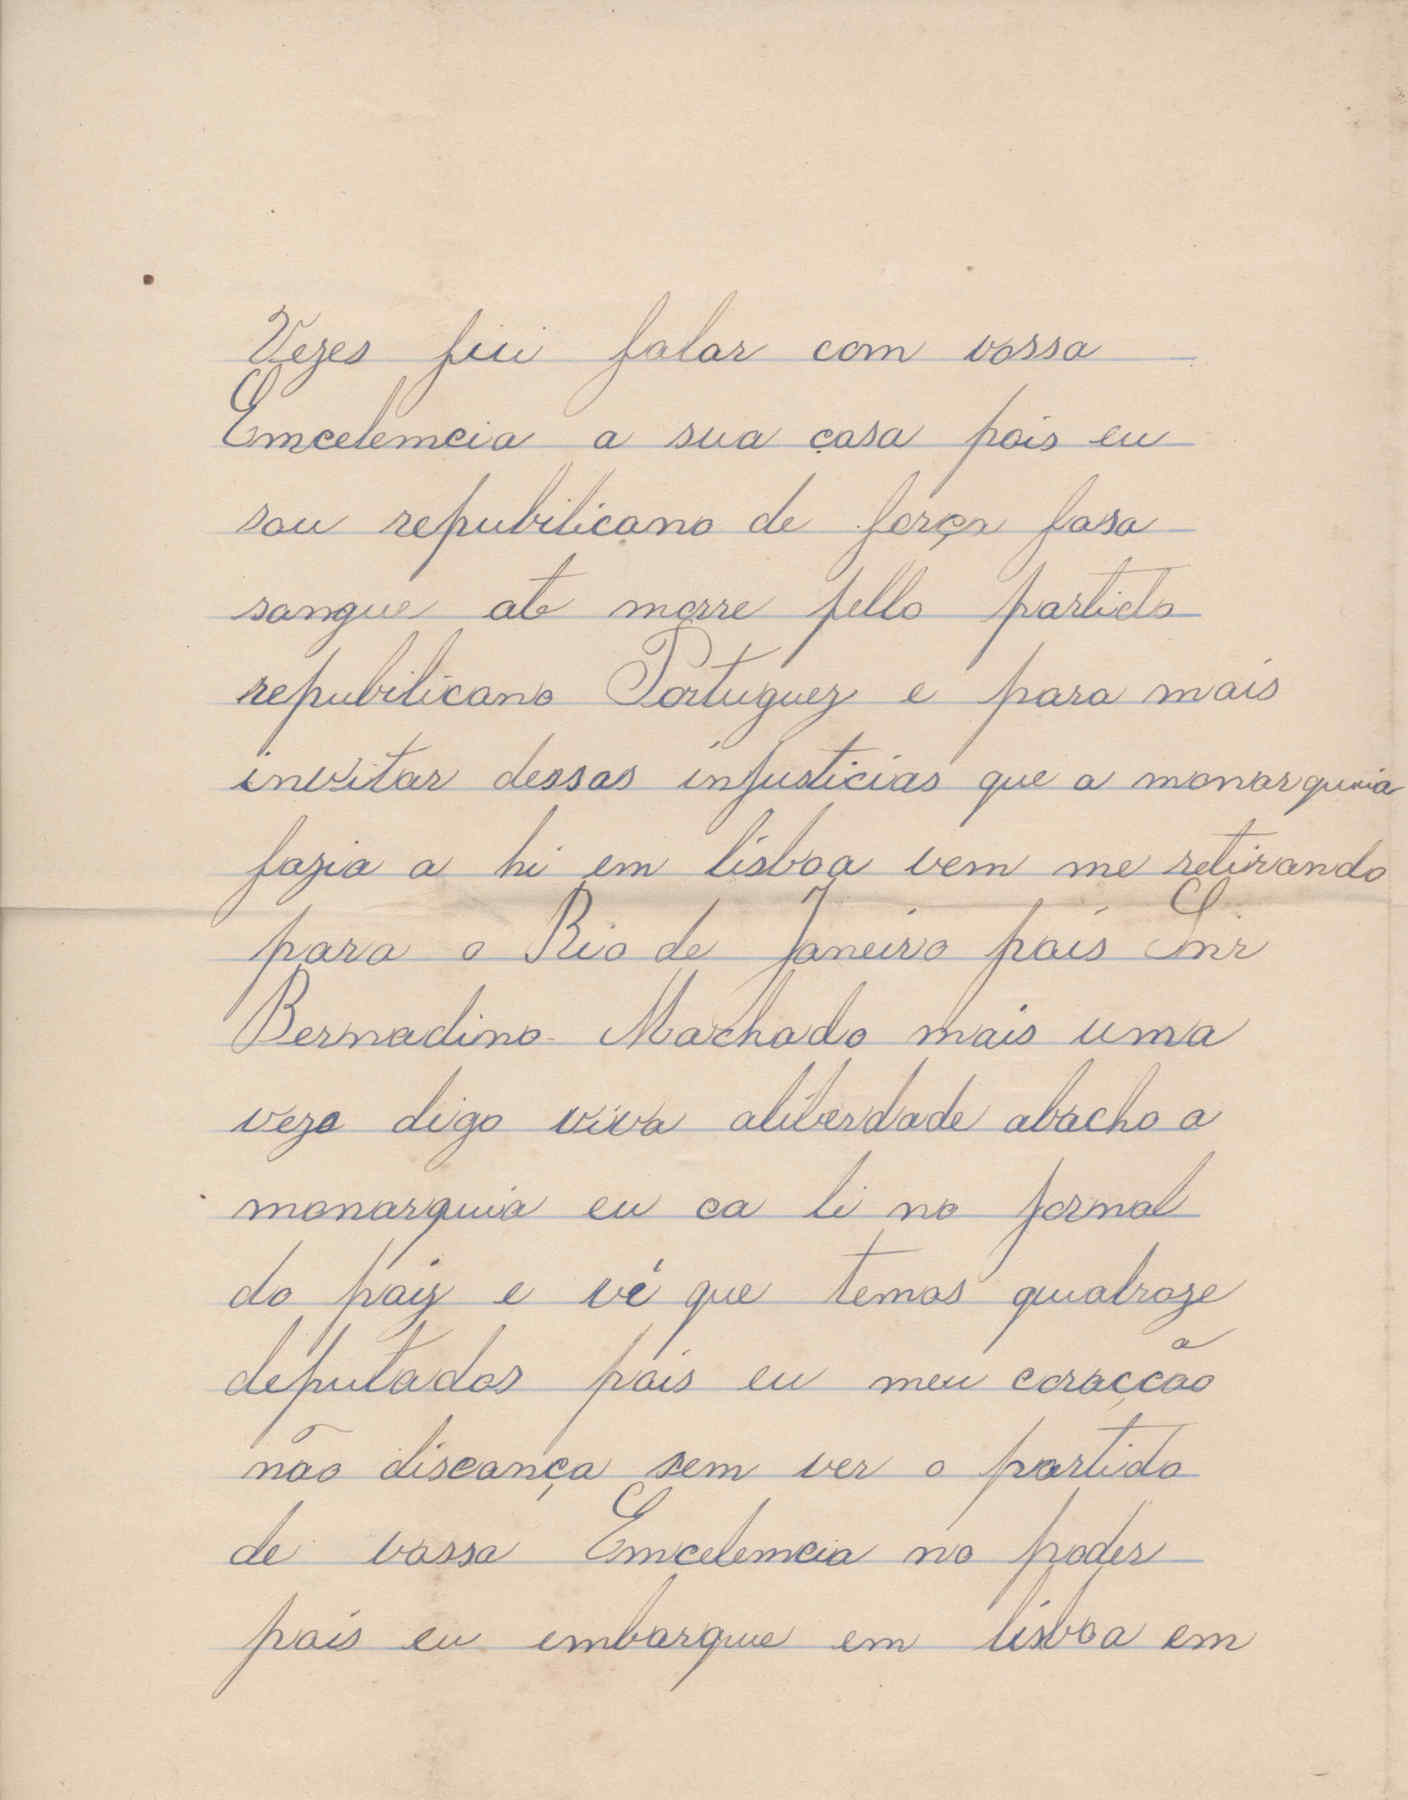 Vezes fui falar com vossa
Emcelemcia a sua casa pois eu
sou republicano de força fasa
sangue ate morre pello partido
republicano Portuguez e para mais
invitar dessas injusticias que a monarquia
fazia a hi em lisboa vem me retirando
para o Rio de Janeiro pois Snr
Bernadino Machado mais uma
veze digo viva aliberdade abacho a
monarquia eu ca li no jornal
do paiz e vi que temos quatroze
deputados pois eu meu coracção
não discança sem ver o partido
de vossa Emcelemcia no poder
pois eu embarque em lisboa em